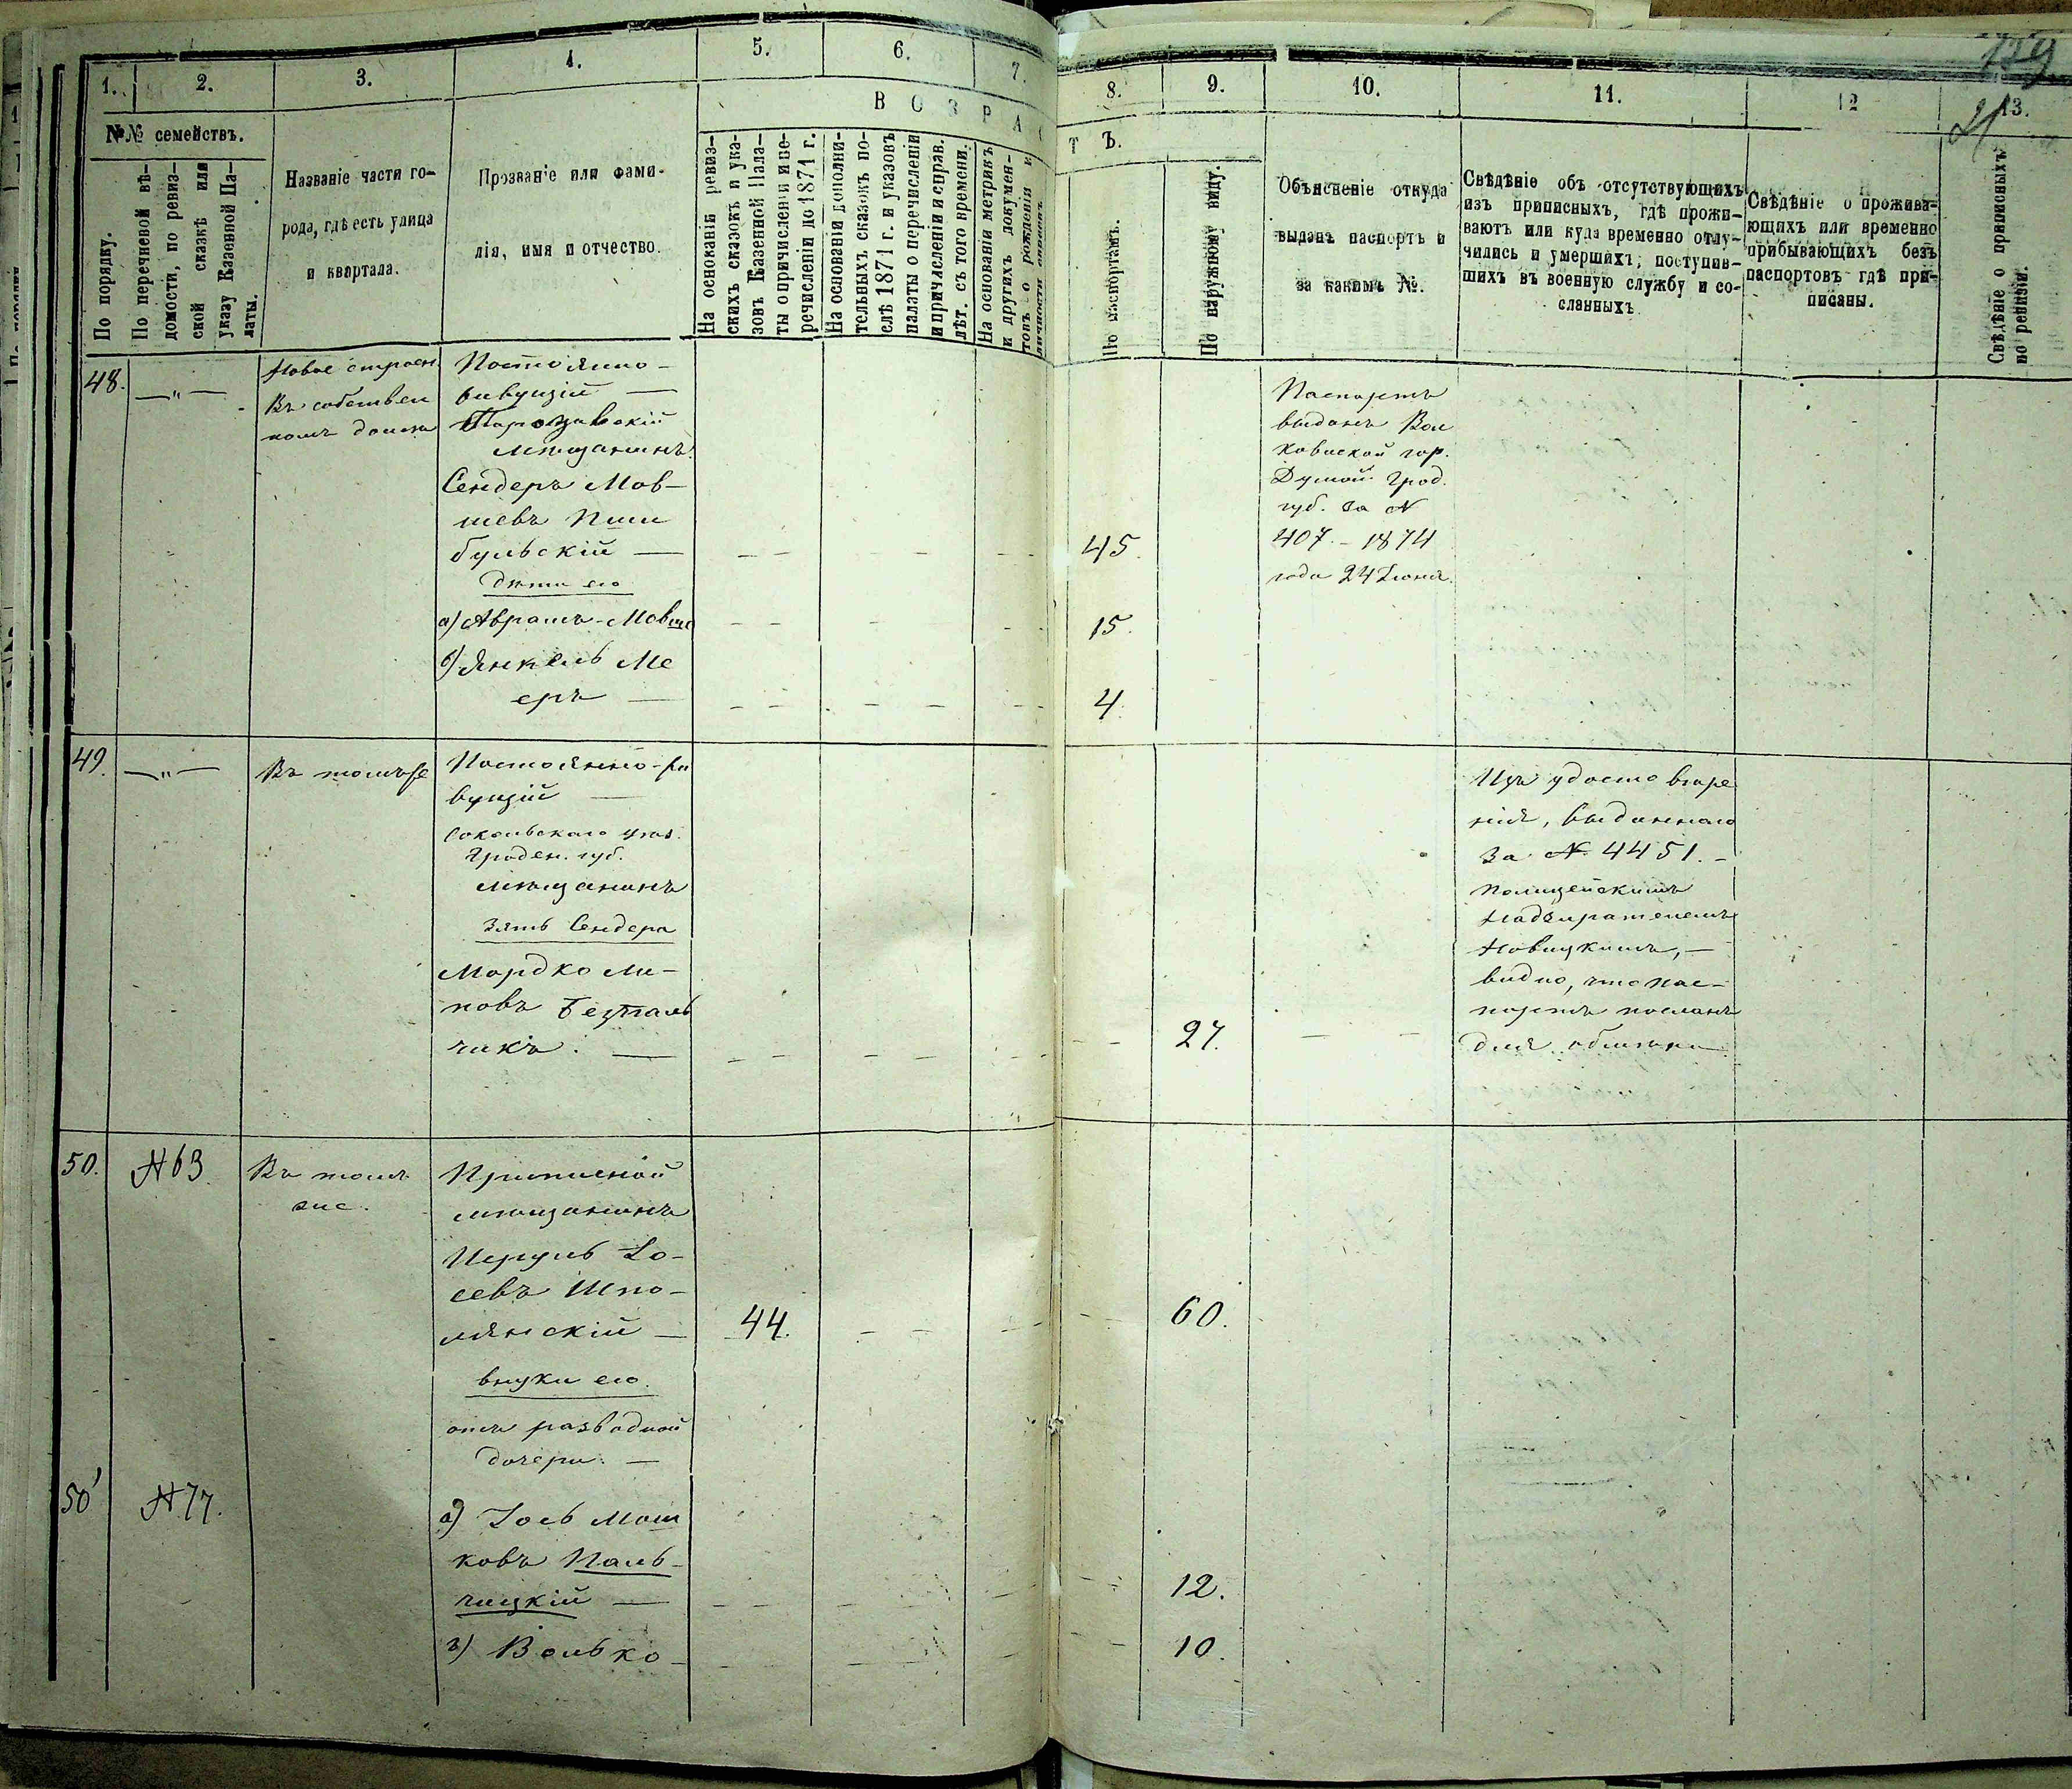 759
21
1.
2.
3.
4.
5.
6.
7.
8.
9.
10.
11.
12
13.
№№ семействъ.
По порядку.
По перечневой вѣ-
домости, по ревиз-
ской сказкѣ или
указу Казенной Па-
латы.
Названіе части го-
рода, гдѣ есть улица
и квартала.
Прозваніе или фами-
лія, имя и отчество.
ВОЗРАСТЪ.
На основаніи ревиз-
скихъ сказокъ и ука-
зовъ Казенной Пала-
ты о причисленіи и пе-
речисленіи до 1871 г.
На основаніи дополни-
тельныхъ сказокъ по-
слѣ 1871 г. и указовъ
палаты о перечисленіи
и причисленіи и справ.
лѣт. съ того времени.
На основаніи метрикъ
и другихъ докумен-
товъ о рожденіи и
По паспортамъ.
По наружному виду.
Объясненіе откуда
выданъ паспортъ и
за какимъ №.
Свѣдѣніе объ отсутствующихъ
изъ приписныхъ, гдѣ прожи-
ваютъ или куда временно отлу-
чились и умершихъ, поступив-
шихъ въ военную службу и со-
сланныхъ
Свѣдѣніе о прожива-
ющихъ или временно
прибывающихъ безъ
паспортовъ гдѣ при-
писаны.
Свѣдѣніе о приписныхъ
по ревизіи.
48.
—„—
Новое строен.
Въ собствен
номъ домѣ
Постоянно-
живущій —
мѣщанинъ.
Сендеръ Мов-
шевъ Пши
бульскій —
дѣти его
а) Абрамъ-Мовша
б) Янкель Ме
еръ —
45.
15.
4.
Паспортъ
выданъ Вол
ковыской гор.
Думой Грод.
губ. за №
407.-1874
года 24 Іюня.
49.
—„—
Въ томъ же
Постоянно-жи
вущій —
Сокольскаго уѣз.
Гроден. губ.
мѣщанинъ
Зять Сендера
Мордко
новъ
чикъ. —
27.
Изъ удостовѣре
нія, выданнаго
За № 4451.-
полицейскимъ
Надзирателемъ
Новицкимъ, —
видно, что пас-
портъ посланъ
для обмѣна
50.
№63.
Въ томъ
же.
Приписной
мѣщанинъ
Исруль Іо-
севъ Шпо-
лянскій —
44.
60.
внуки его.
отъ разводной
дочери. —
50'
№77.
а) Іось Мош
ковъ Паль-
чицкій —
12.
Волько-
10.